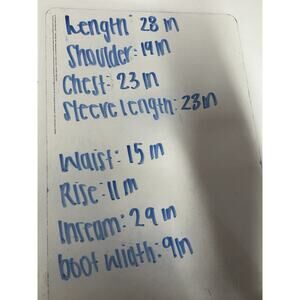 Length: 28 in
Shoulder: 19 in
Chest: 23 in
Sleeve length: 23in
Waist: 15 in
Rise: 11 in
Inseam: 29 in
boot width: 9in